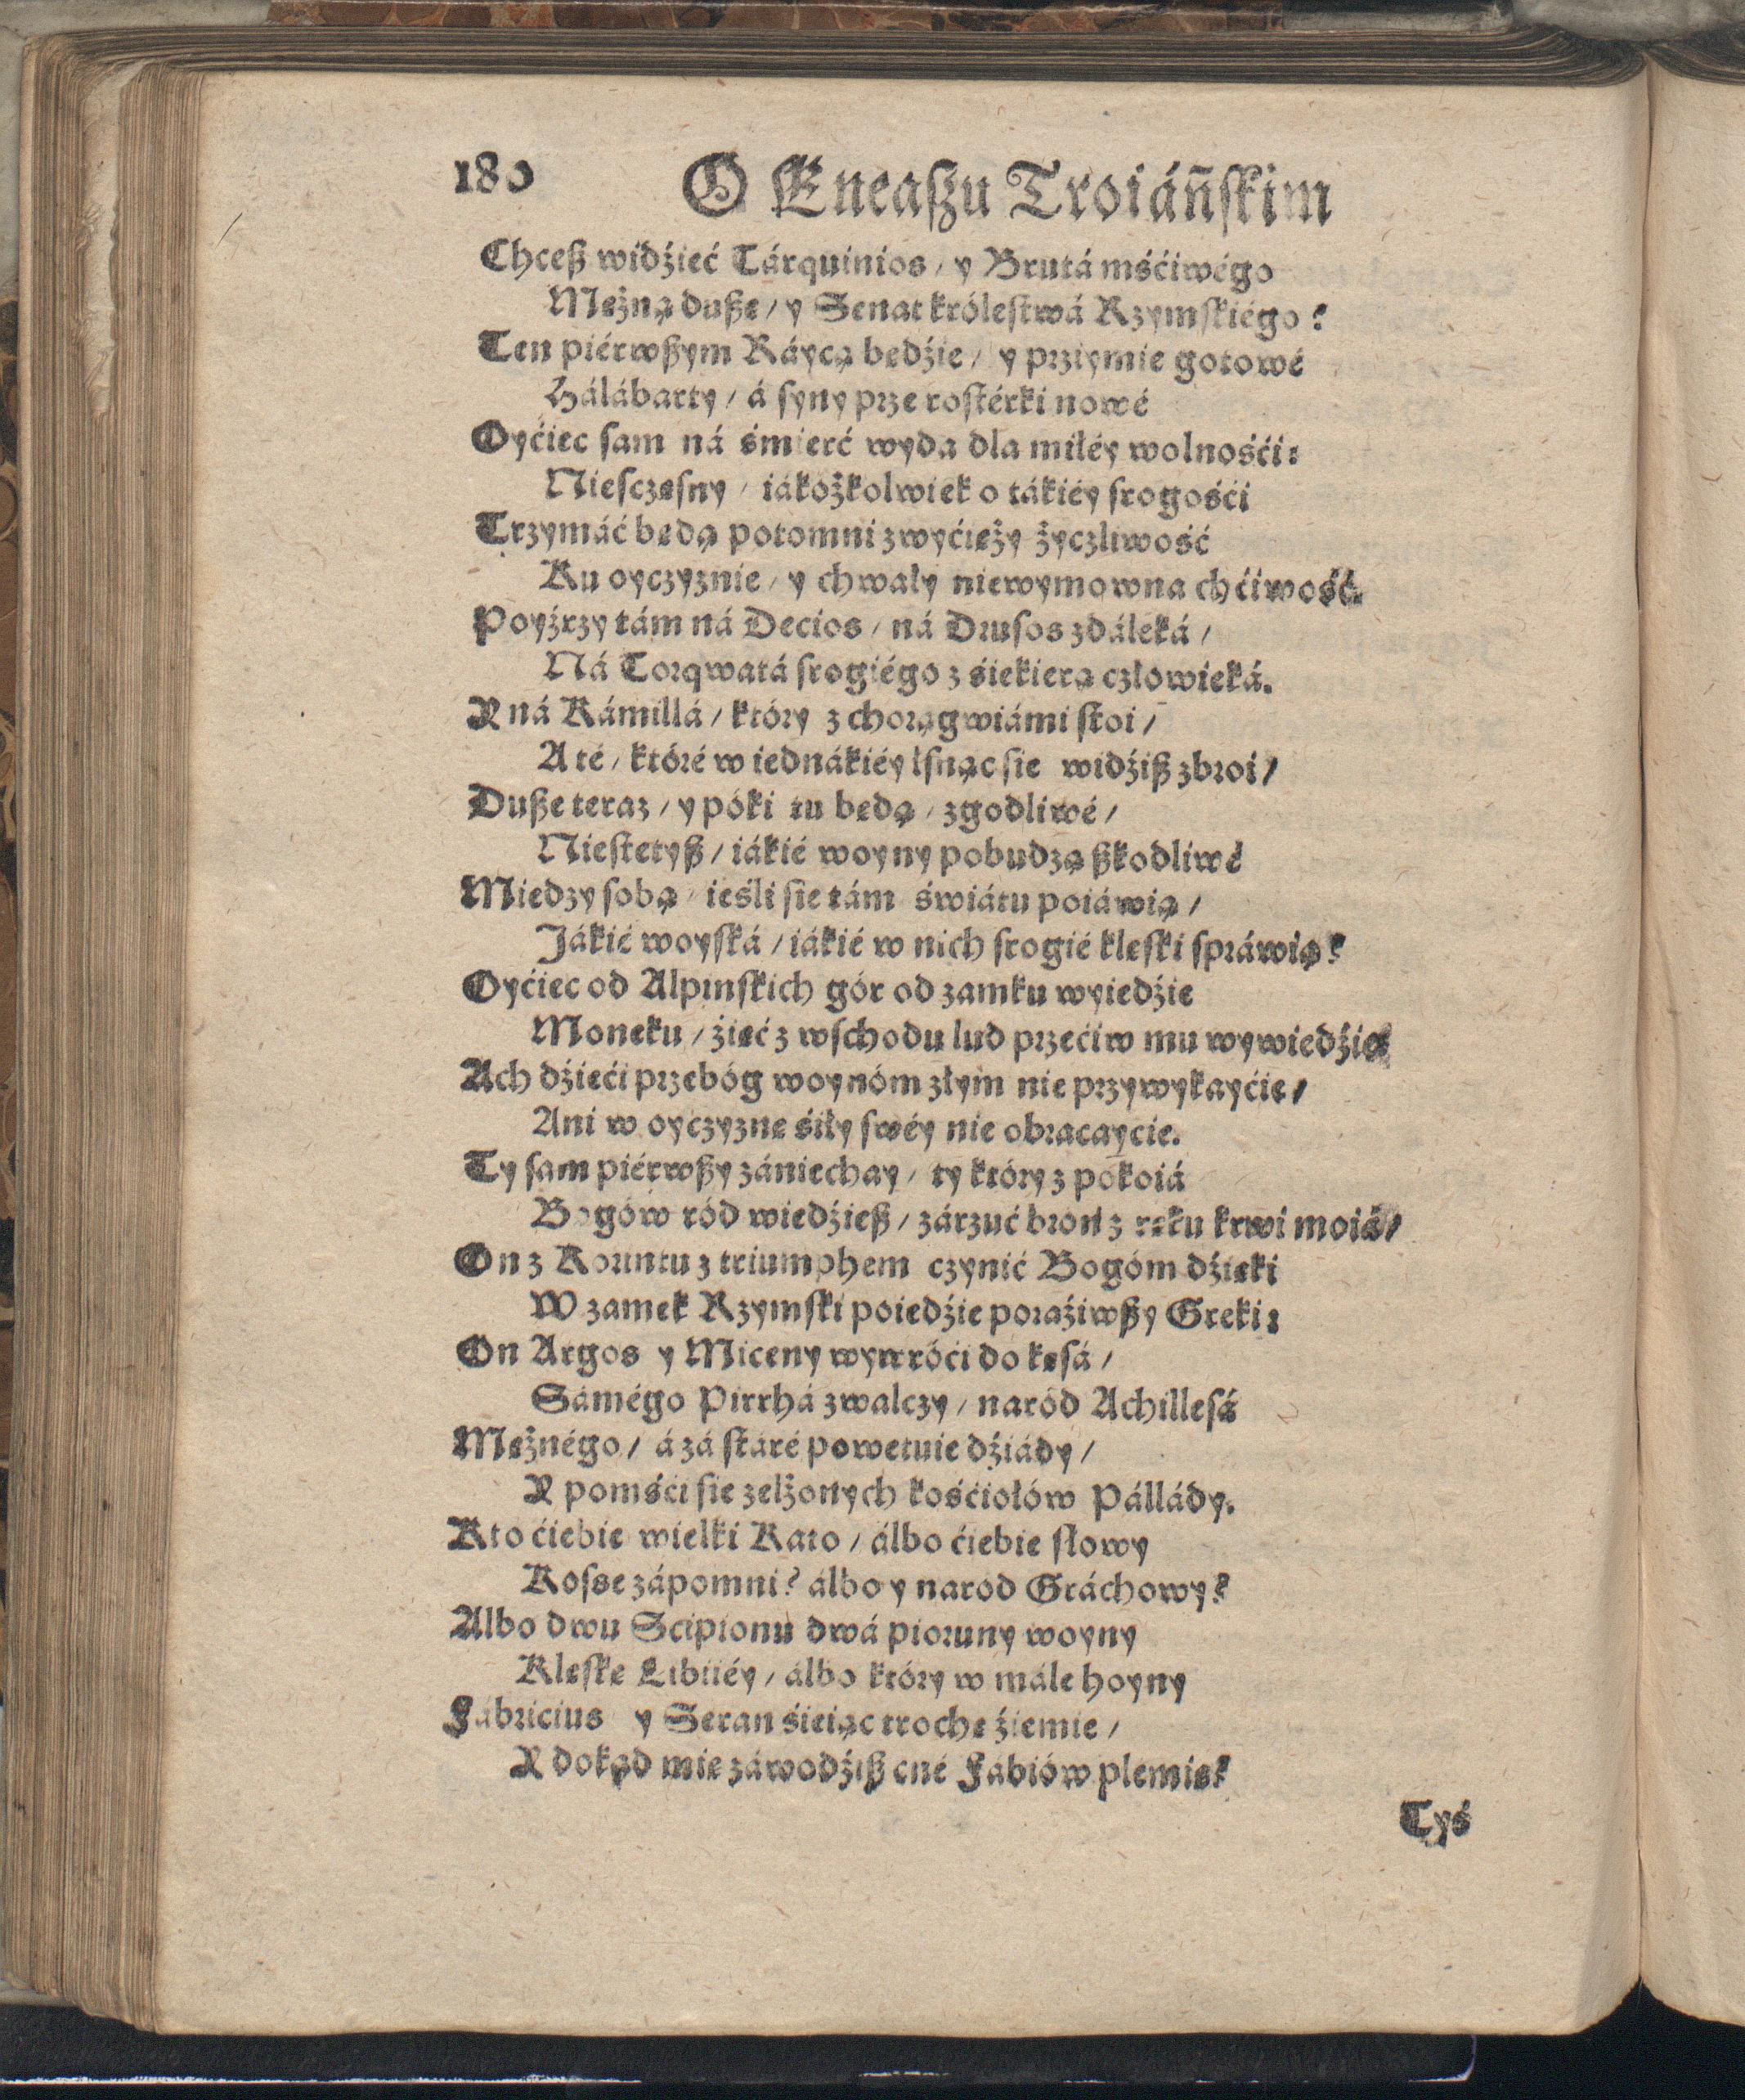 180 O Eneaſzu Troiáńſkim
Chceß widźieć Tárquinios / y Brutá mśćiwégo
Mężną dußę / y Senat króleſtwá Rzymſkiégo?
Ten piérwßym Ráycą będźie / y prziymie gotowé
Hálábarty / á ſyny prze roſtérki nowé
Oyćiec ſam ná śmierć wyda dla miłéy wolnośći:
Nieſczęſny / iákożkolwiek o tákiéy ſrogośći
Trzymáć będą potomni zwyćięży życzliwość
Ku oyczyznie / y chwały niewymowna chćiwość.
Poyźrzy tám ná Decios / ná Druſos zdáleká /
Ná Torqwatá ſrogiégo z śiekierą człowieká.
Y ná Kámillá / który z chorągwiámi ſtoi /
A té / któré w iednákiéy lſnąc ſie widźiß zbroi /
Duße teraz / y póki tu będą / zgodliwé /
Nieſtetyß / iákié woyny pobudzą ßkodliwé
Miedzy ſobą / ieśli ſie tám świátu poiáwią /
Jákié woyſká / iákié w nich ſrogié klęſki ſpráwią?
Oyćiec od Alpinſkich gór od zamku wyiedźie
Moneku / źięć z wſchodu lud przećiw mu wywiedźie
Ach dźieći przebóg woynóm złym nie przywykayćie /
Ani w oyczyznę śiły ſwéy nie obracaycie.
Ty ſam piérwßy zániechay / ty który z pokoiá
Bogów ród wiedźieß / zárzuć broń z ręku krwi moiá /
On z Koruntu z triumphem czynić Bogóm dźięki
W zamek Rzymſki poiedźie poraźiwßy Greki:
On Argos y Miceny wywróći do kęsá /
Sámégo Pirrhá zwalczy / naród Achilleſá
Mężnégo / á zá ſtáré powetuie dźiády /
Y pomśći ſie zelżonych kośćiołów Pállády.
Kto ćiebie wielki Kato / álbo ćiebie ſłowy
Koſse zápomni? álbo y naród Gráchowy?
Albo dwu Scipionu dwá pioruny woyny
Klęſkę Libiiéy / álbo który w mále hoyny
Fábricius y Seran śieiąc trochę źiemie /
Y dokąd mię záwodźiß cné Fábiów plemię?
Tyś